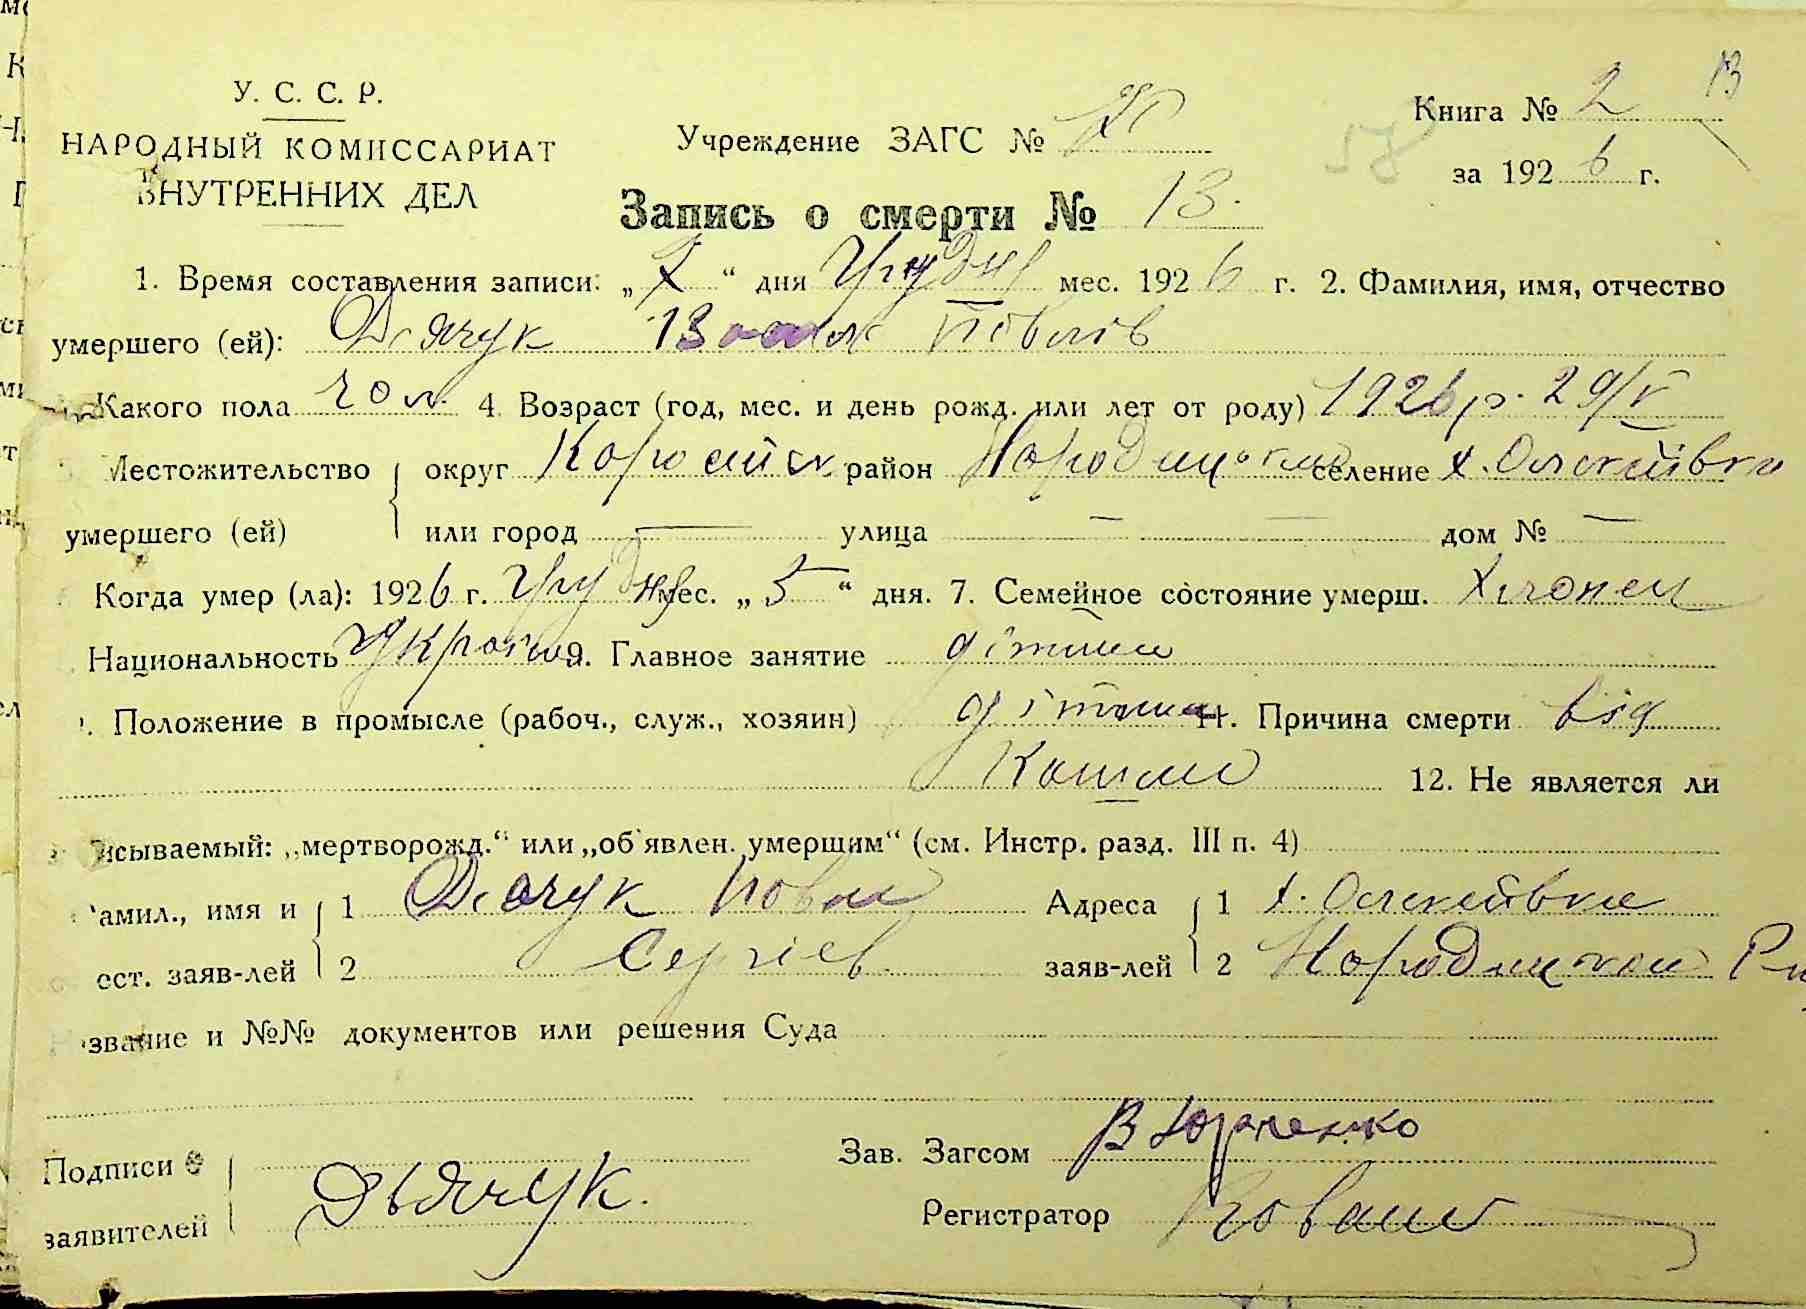 У. С. С. Р.
НАРОДНЫЙ КОМИССАРИАТ
ВНУТРЕННИХ ДЕЛ
Учреждение ЗАГС №
Книга № 2
13
за 1926 г.
Запись о смерти № 13.
1. Время составления записи: „7“ дня Грудня мес. 1926 г. 2. Фамилия, имя, отчество
умершего (ей): Дячук Іван Повлов
Какого пола чол. 4. Возраст (год, мес. и день рожд. или лет от роду) 1926 р. 29/V
Местожительство округ район Народицьк селение х. Олексіївка
умершего (ей) или город — улица — — дом № —
Когда умер (ла): 1926 г. Грудня мес. „5“ дня. 7. Семейное состояние умерш. Хлопец
Национальность Україн 9. Главное занятие дітина
Положение в промысле (рабоч., служ., хозяин) дітина 11. Причина смерти від
Кашлю 12. Не является ли
исываемый: „мертворожд.“ или „об'явлен. умершим“ (см. Инстр. разд. III п. 4)
амил., имя и 1 Дячук Повло Адреса 1 х. Олексіївка
ест. заяв-лей 2 Сергієв заяв-лей 2 Народицькой Р-н
звание и №№ документов или решения Суда
Подписи
заявителей Дьячук.
Зав. Загсом В Юрченко
Регистратор